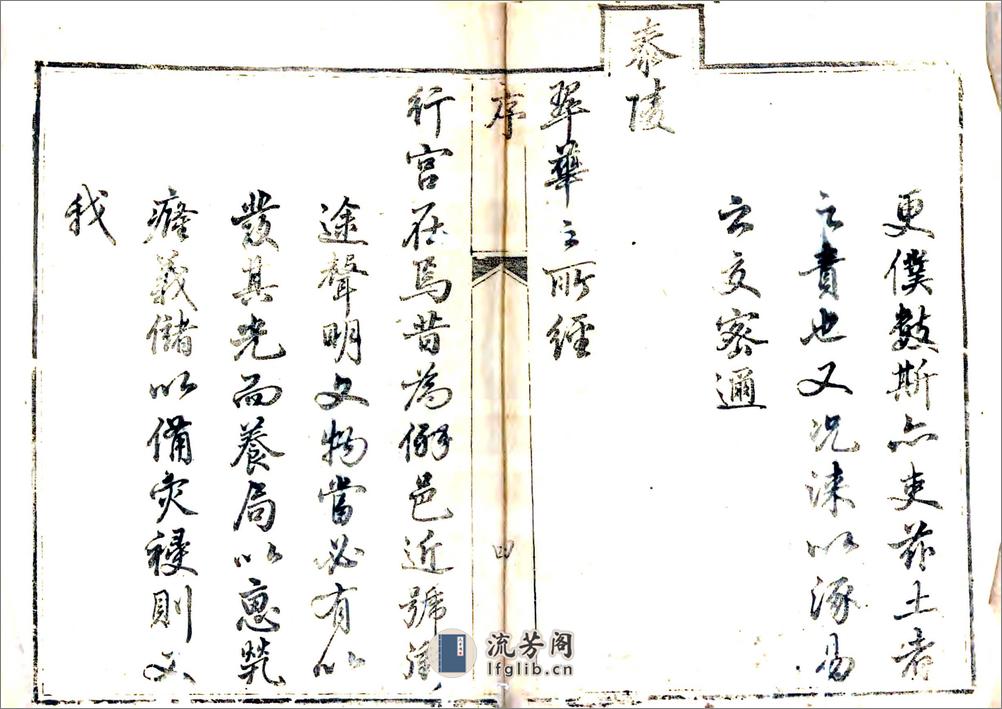 更僕數斯亦吏茲土者
之責也又況淶以涿易
之交密邇
泰陵
翠華之所經
序
四
行宮在焉昔為僻邑近號
途聲明文物當必有以
發其光而養局以惠煢
癃義儲以備灾祲則又
我
流芳阁
lfglib.cn